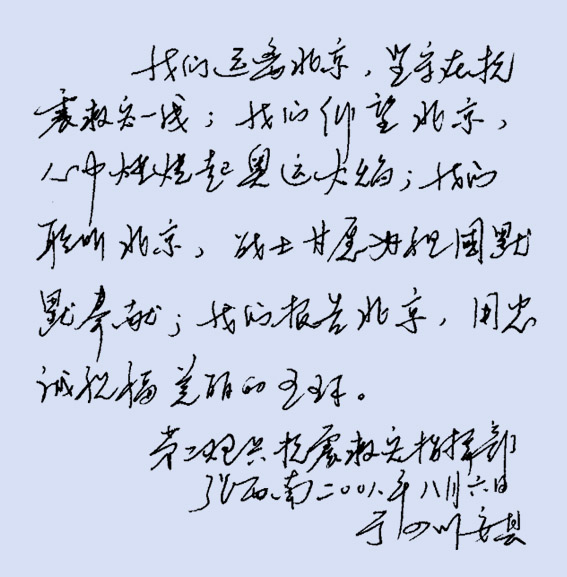 我们远离北京，坚守在抗
震救灾一线；我们仰望北京，
心中燃烧起奥运火焰；我们
聆听北京，战士甘愿为祖国默
默奉献；我们报告北京，用忠
诚祝福美丽的五环。
第二炮兵抗震救灾指挥部
张西南二〇〇八年八月六日
于四川安县